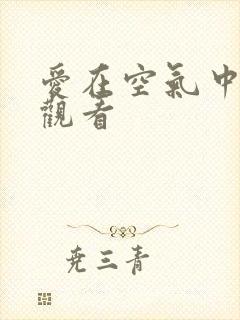 愛在空氣中
觀看
尭三青